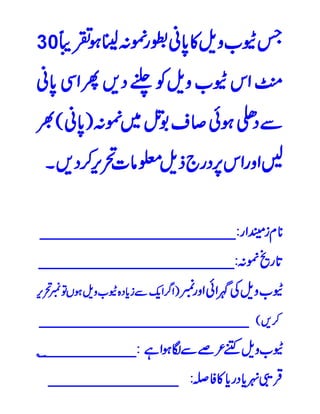 جس ٹیوب ویل کا پانی بطور نمونہ لینا ہو تقریباً 30
منٹ اس ٹیوب ویل کو چلنے دیں پھر اسی پانی
سے دھلی ہوئی صاف بوتل میں نمونہ (پانی) بھر
لیں اور اس پر درج ذیل معلومات تحریر کر دیں۔
نام زمیندار: ____________________
تاریخ نمونہ: ____________________
ٹیوب ویل کی گہرائی اور نمبر (اگر ایک سے زیادہ ٹیوب ویل ہوں تو نمبر تحریر
کریں) ____________________
ٹیوب ویل کتنے عرصے سے لگا ہوا ہے : ____________________
قریبی نہر یا دریا کا فاصلہ: ____________________